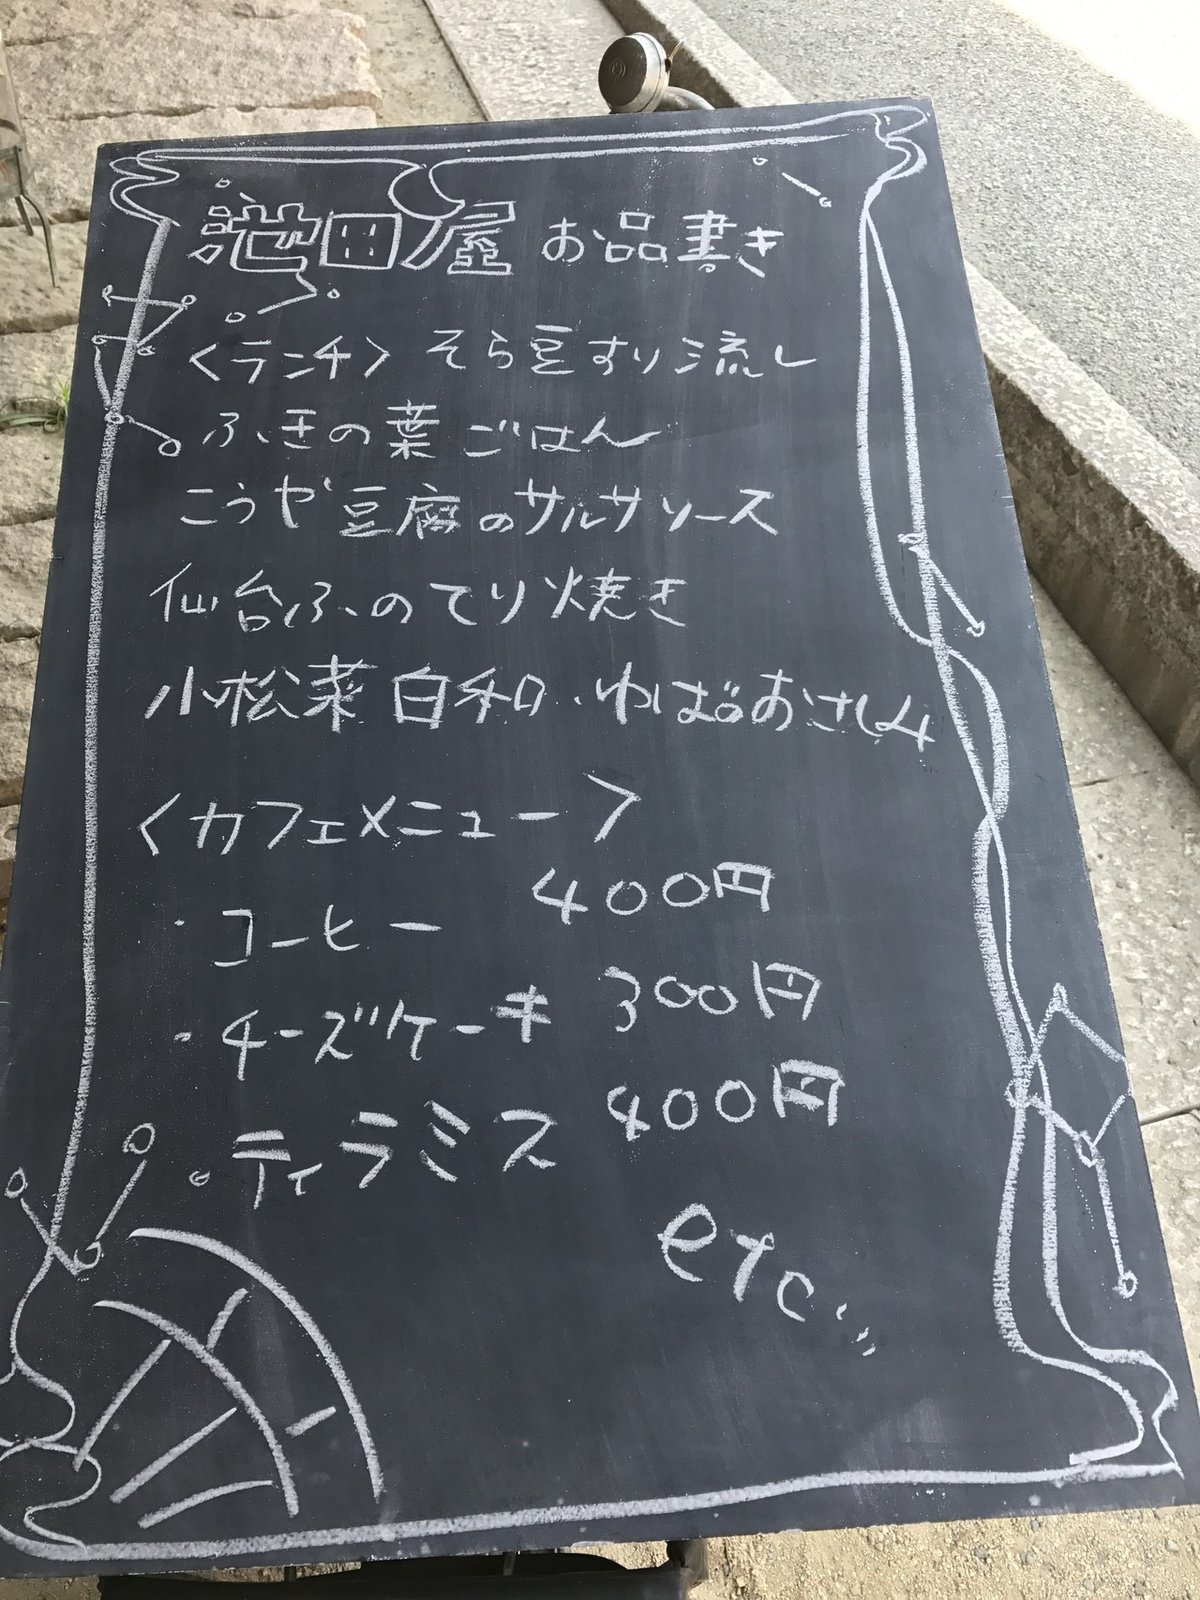 池田屋 お品書き
〈ランチ〉 そら豆すり流し
ふきの葉ごはん
こうや豆腐のサルサソース
仙台ふのてり焼き
小松菜白和・ゆばのおさしみ
〈カフェメニュー〉
・コーヒー 400円
・チーズケーキ 300円
・ティラミス 400円
etc...